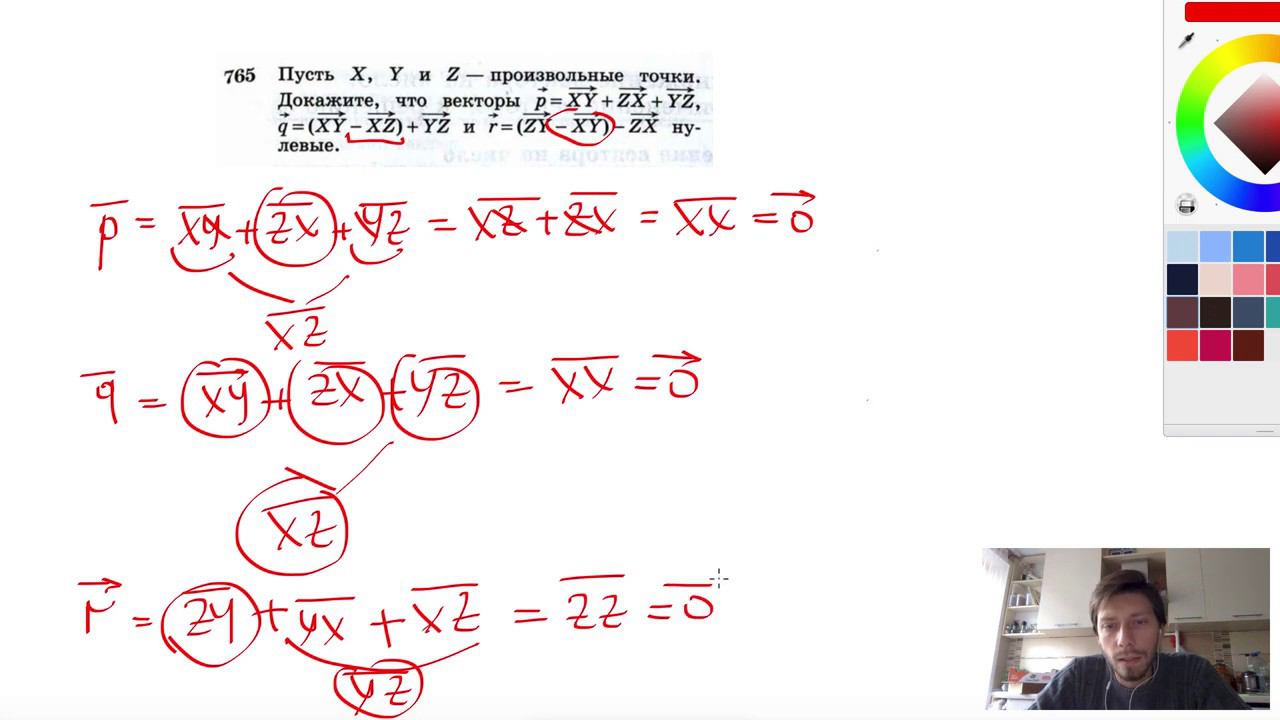 765 Пусть X, Y и Z — произвольные точки.
Докажите, что векторы p⃗ = XY⃗ + ZX⃗ + YZ⃗,
q⃗ = (XY⃗ − XZ⃗) + YZ⃗ и r⃗ = (ZY⃗ − XY⃗) − ZX⃗ ну-
левые.
p̅ = X̅Y̅ + Z̅X̅ + Y̅Z̅ = X̅Z̅ + Z̅X̅ = X̅X̅ = 0⃗
X̅Z̅
q̅ = XY⃗ + Z̅X̅ + Y̅Z̅ = X̅X̅ = 0⃗
X̅Z̅
r⃗ = Z̅Y̅ + Y̅X̅ + X̅Z̅ = Z̅Z̅ = 0̅
Y̅Z̅